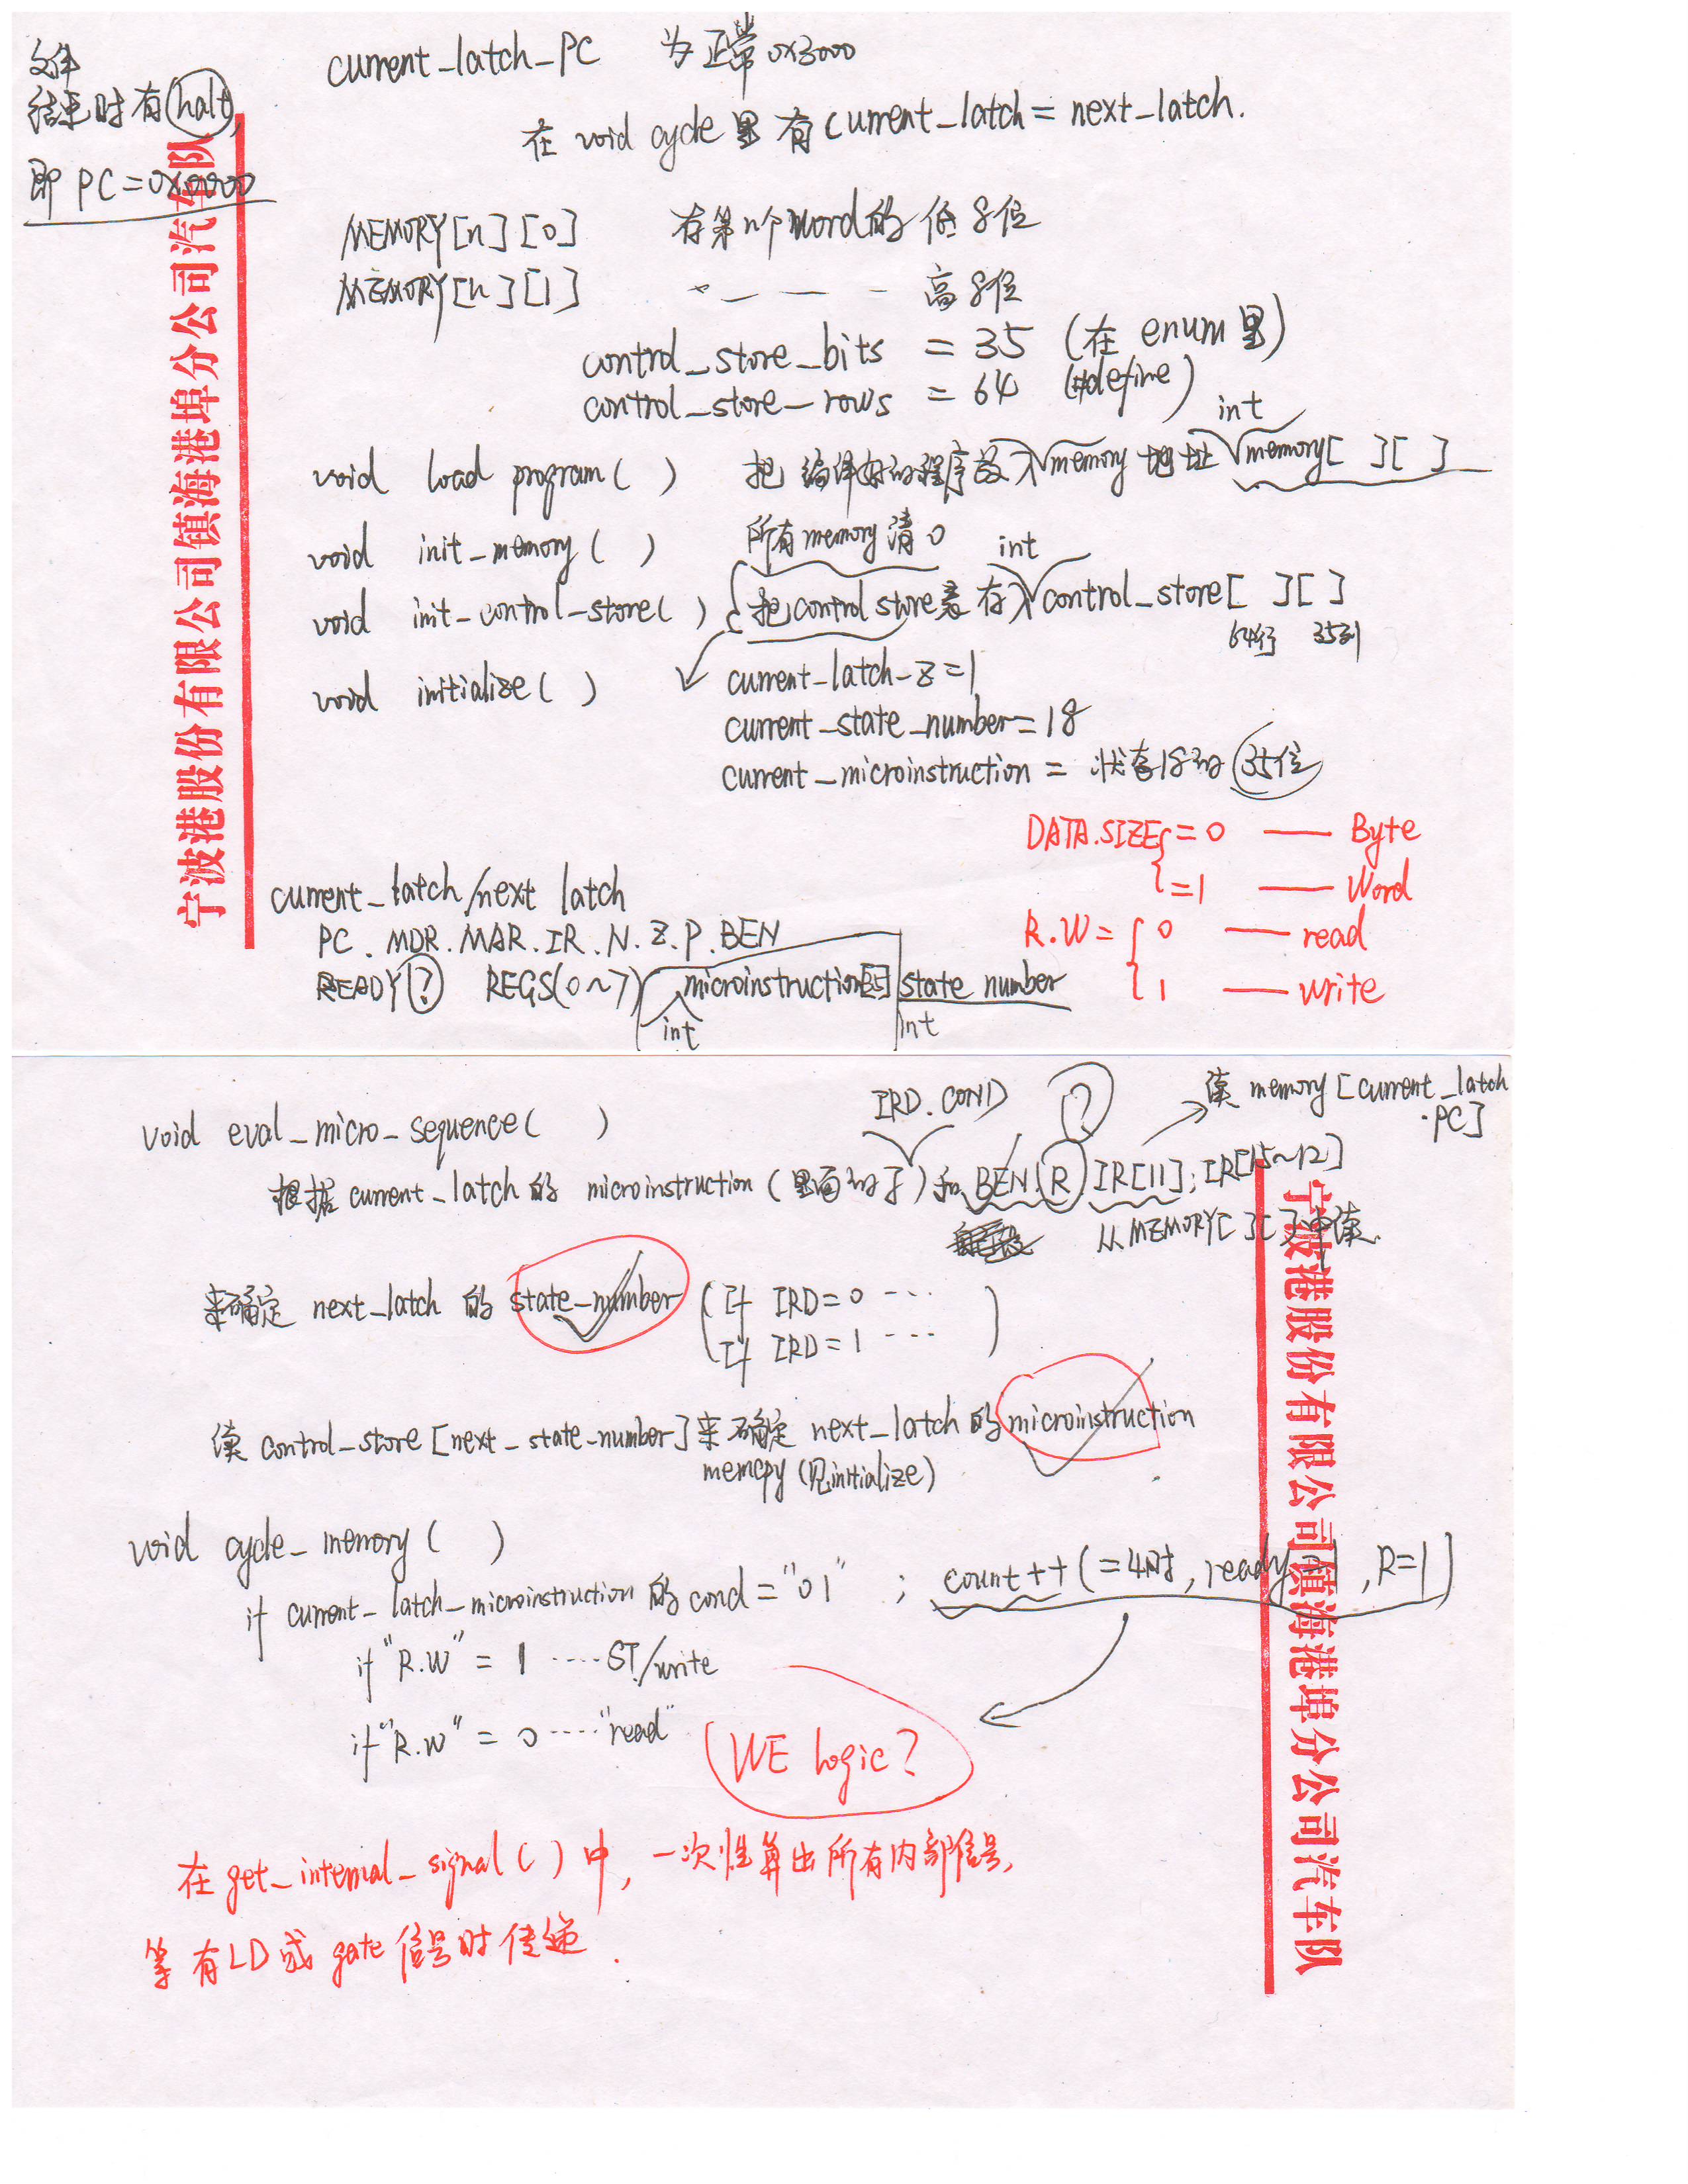 文件
结束时有halt,
即 PC=0x0000
current_latch_PC 为正常 0x3000
在 void cycle 里 有 current_latch = next_latch.
MEMORY[n][0] 存第n个word的 低8位
MEMORY[n][1] - — — - 高8位
control_store_bits = 35 (在 enum 里)
control_store_rows = 64 (#define)
int
void load program( ) 把 编译好的程序放入 memory 地址 memory[ ][ ]
void init_memory( ) 所有memory清0
int
void init_control_store( ) 把control store表 存入 control_store[ ][ ]
64行 35列
void initialize( ) current_latch_z=1
current_state_number=18
current_microinstruction = 状态18的 35位
DATA.SIZE =0 — Byte
=1 — Word
R.W = 0 — read
1 — write
current_latch/next latch
PC. MDR. MAR. IR. N. Z. P. BEN
READY? REGS(0~7) microinstruction state number
int int
宁波港股份有限公司镇海港埠分公司汽车队
IRD. COND ? 读 memory [current_latch
.PC]
void eval_micro_sequence( )
根据 current_latch 的 microinstruction (里面的 J) 和 BEN. R. IR[11]; IR[15~12]
从 MEMORY[ ][ ]中读.
来确定 next_latch 的 state_number (If IRD=0 ...
If IRD=1 ...)
读 control_store [next_state_number] 来确定 next_latch 的 microinstruction
memcpy (见initialize)
void cycle_memory( )
if current_latch_microinstruction 的 cond = "01" ; count++ (=4时, ready=1, R=1)
if "R.W" = 1 ---- ST/write
if "R.W" = 0 ---- "read"
WE logic?
在 get_internal_signal( ) 中, 一次性算出所有内部信号,
等 有 LD 或 gate 信号时传递.
宁波港股份有限公司镇海港埠分公司汽车队